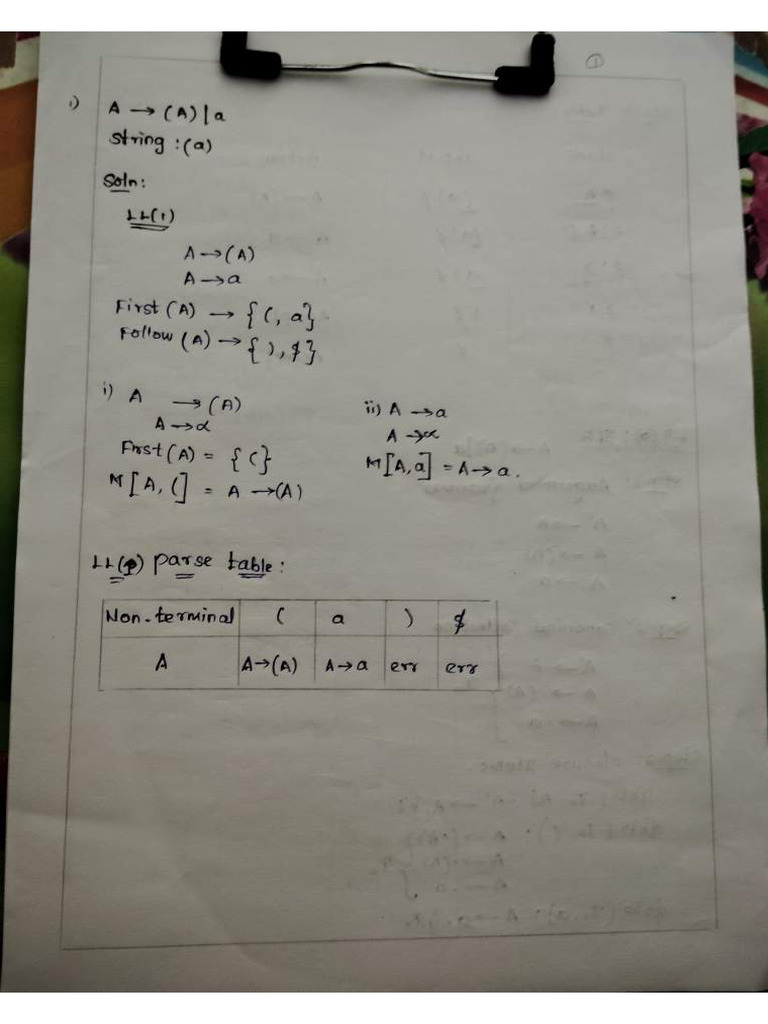 ①
i) A → (A) | a
string : (a)
Soln:
LL(1)
A → (A)
A → a
First (A) → { (, a}
Follow (A) → { ), $}
i) A → (A)
A → α
First (A) = { (}
M [A, (] = A → (A)
ii) A → a
A → α
M [A, a] = A → a.
LL(1) parse table:
Non-terminal ( a ) $
A A→(A) A→a err err